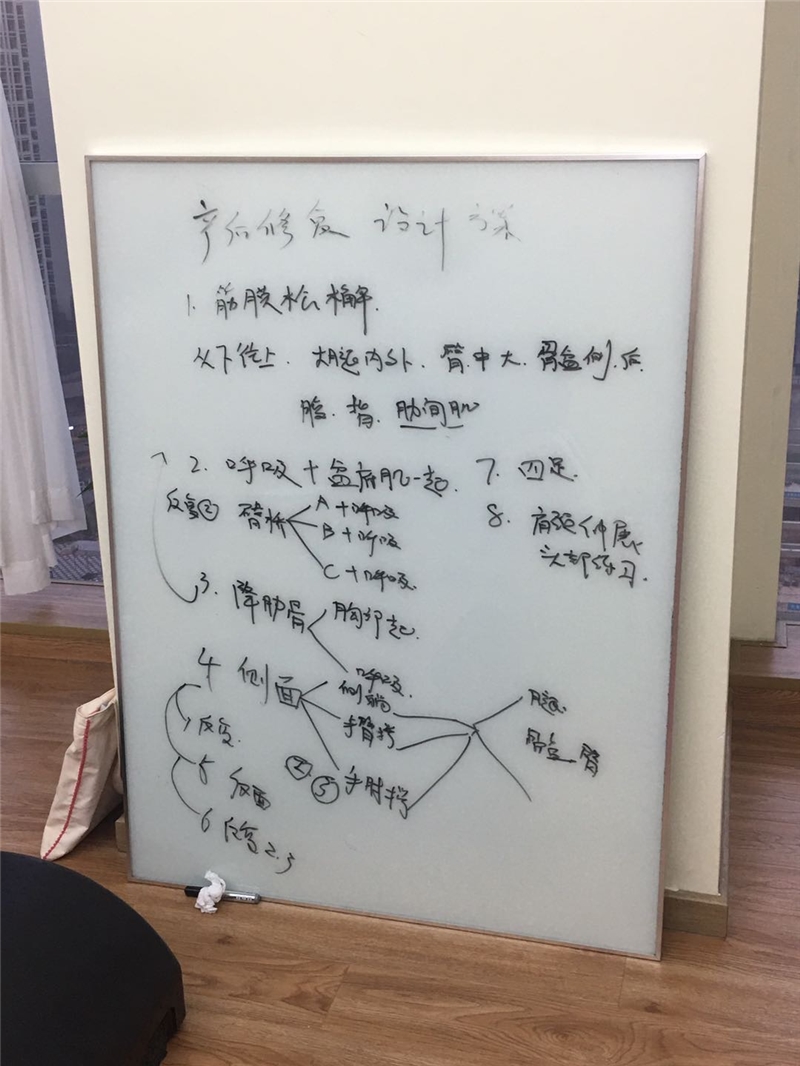 产后修复 设计方案
1. 筋膜松解.
从下往上. 大腿内外. 臀.中大. 骨盆侧.后
腹. 背. 肋间肌
2. 呼吸+盆底肌一起.
反复② 臀桥
A+呼吸
B+呼吸
C+呼吸.
3. 降肋骨
胸部起.
呼吸.
4 侧面
侧躺
手臂撑
② ③ 手肘撑
腿.
骨盆 臀
反复.
5 反面
6 反复2.3
7. 四足.
8. 肩颈伸展
头部练习.